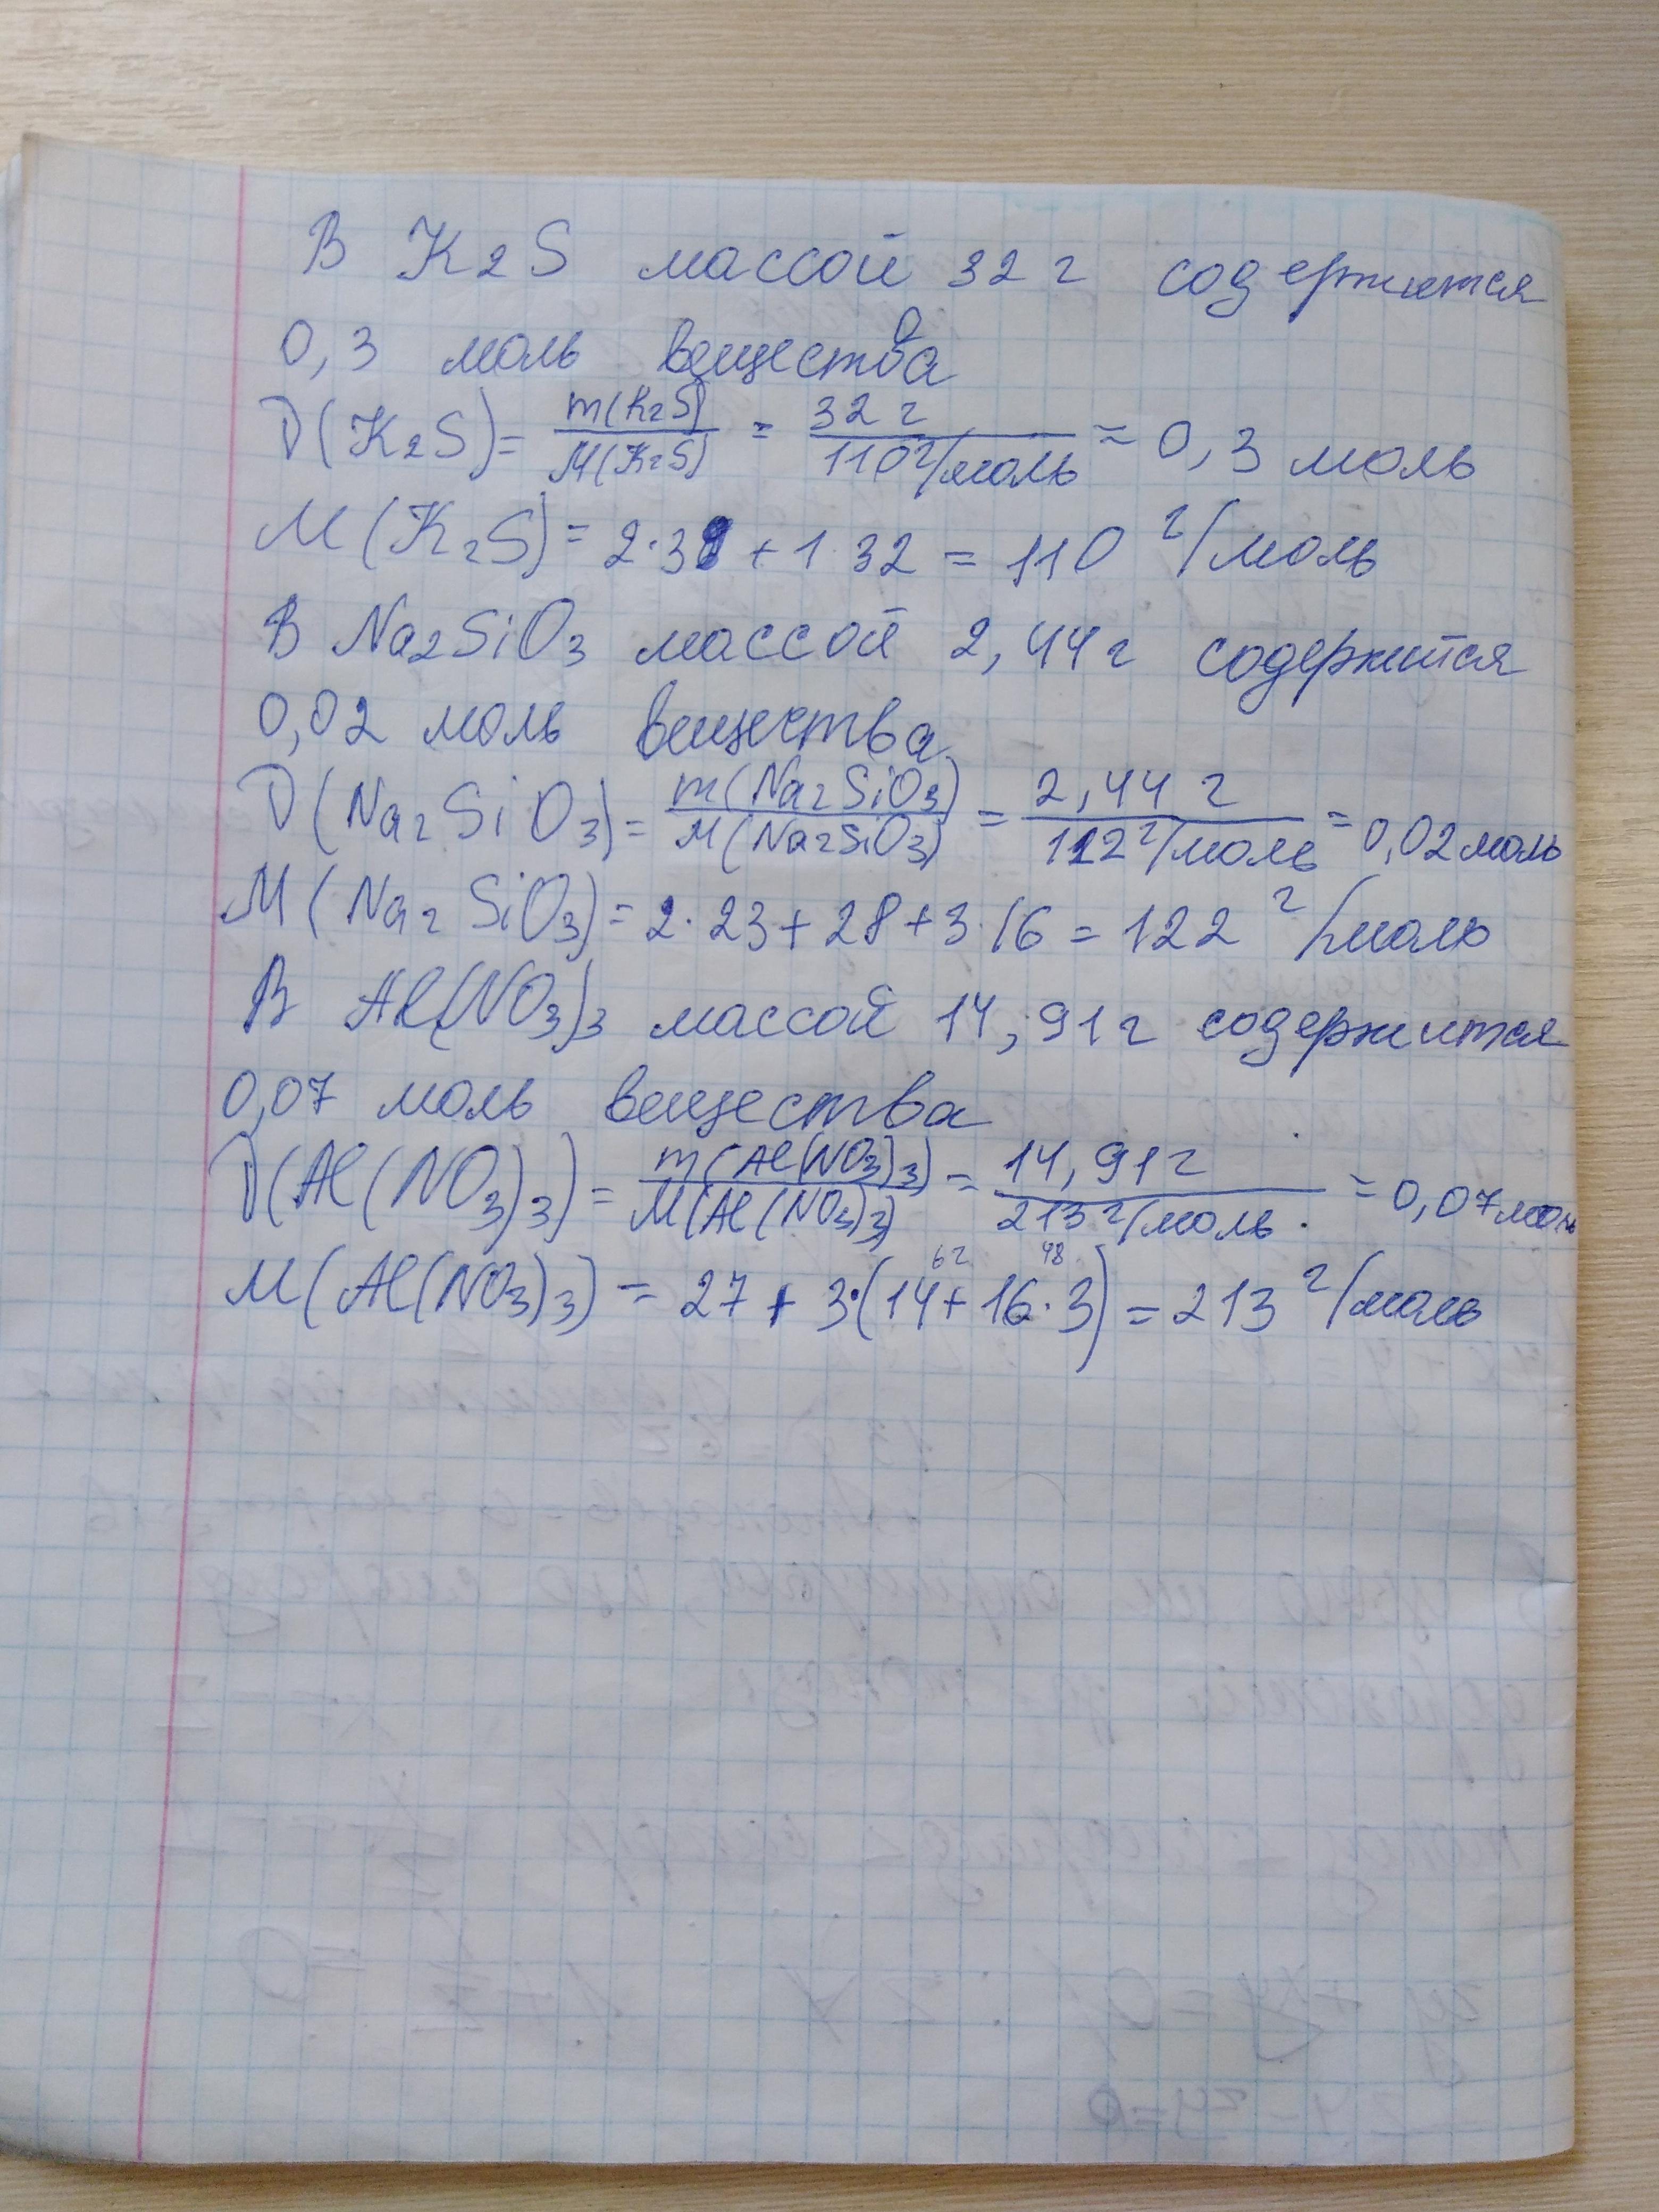 В K2S массой 32 г содержится
0,3 моль вещества
υ(K2S)= m(K2S)/M(K2S) = 32 г/110 г/моль ≈ 0,3 моль
M(K2S)= 2·39 + 1·32 = 110 г/моль
В Na2SiO3 массой 2,44 г содержится
0,02 моль вещества
υ(Na2SiO3)= m(Na2SiO3)/M(Na2SiO3) = 2,44 г/122 г/моль = 0,02 моль
M(Na2SiO3)= 2·23+28+3·16 = 122 г/моль
В Al(NO3)3 массой 14,91 г содержится
0,07 моль вещества
υ(Al(NO3)3)= m(Al(NO3)3)/M(Al(NO3)3) = 14,91 г/213 г/моль = 0,07 моль
62 48
M(Al(NO3)3) = 27 + 3·(14+16·3) = 213 г/моль